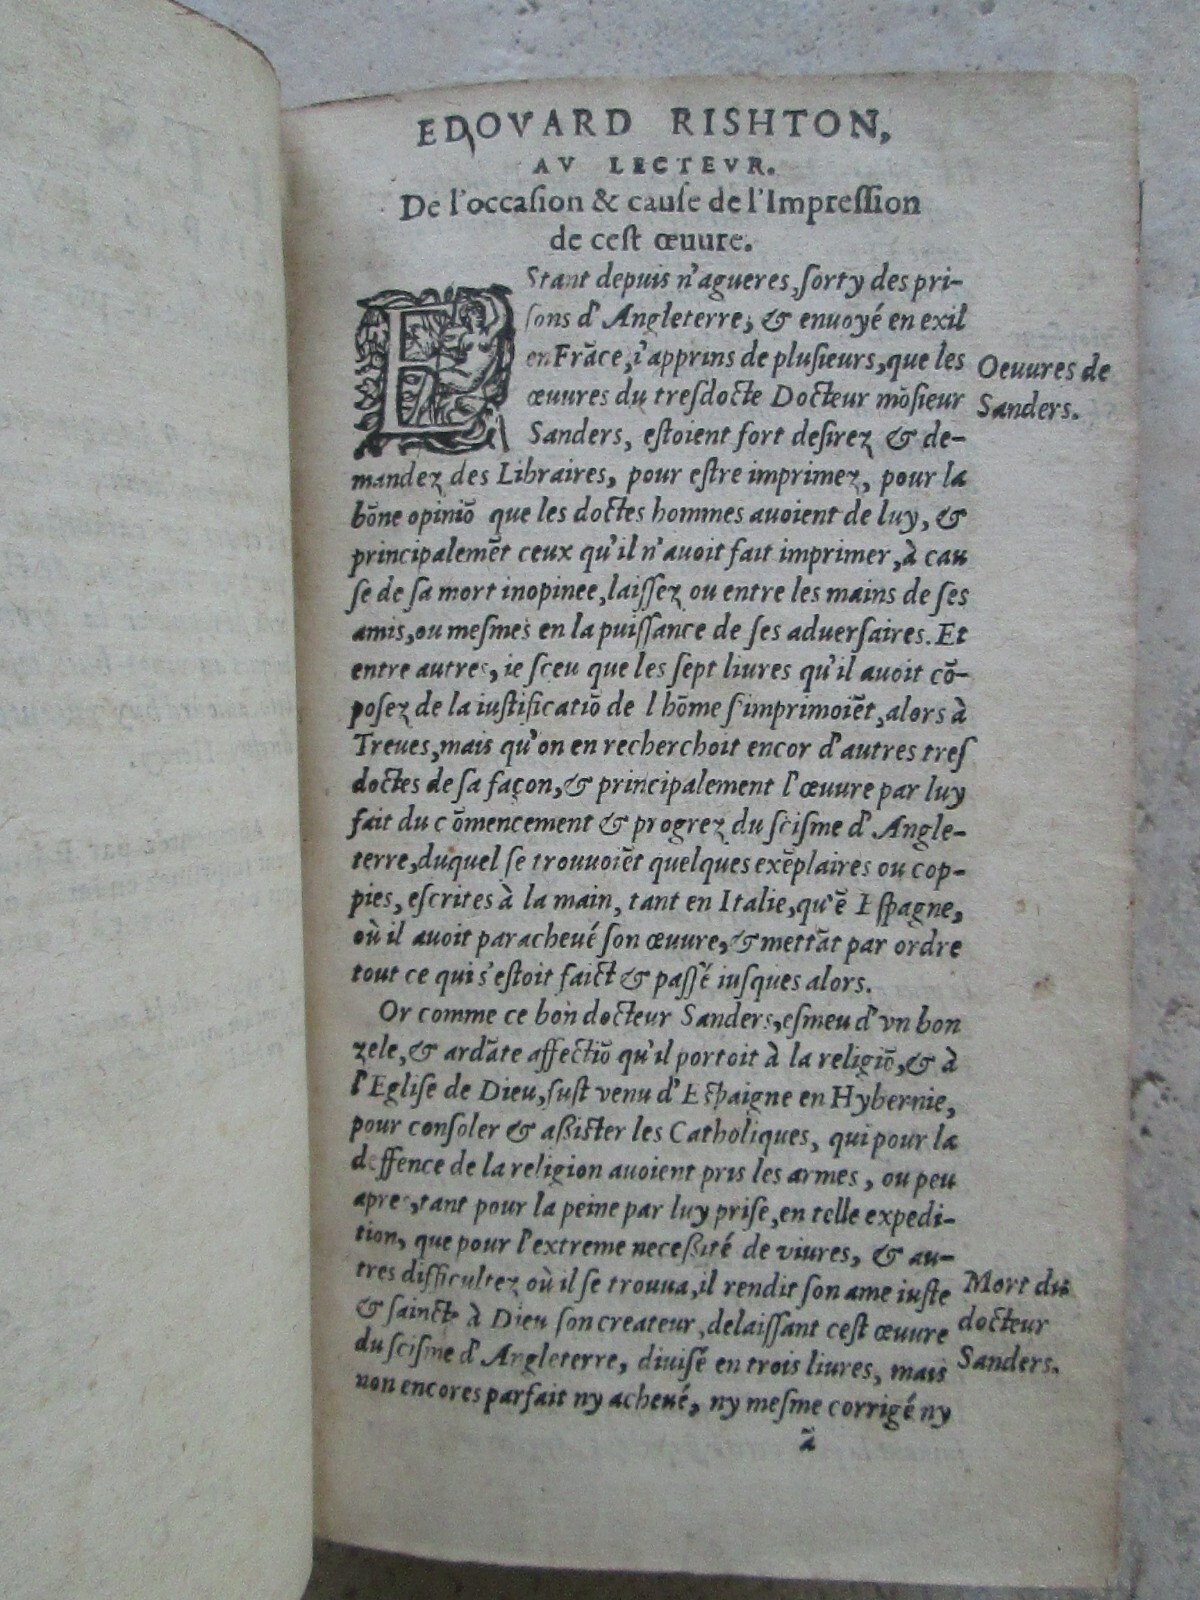 EDOVARD RISHTON,
AV LECTEVR.
De l'occaſion & cauſe de l'Impreſſion
de ceſt œuure.
EStant depuis n'agueres, ſorty des pri-
ſons d'Angleterre, & enuoyé en exil
en Frāce, i'apprins de pluſieurs, que les
œuures du treſdocte Docteur mōſieur
Sanders, eſtoient fort deſirez & de-
mandez des Libraires, pour eſtre imprimez, pour la
bōne opiniō que les doctes hommes auoient de luy, &
principalemēt ceux qu'il n'auoit fait imprimer, à cau
ſe de ſa mort inopinee, laiſſez ou entre les mains de ſes
amis, ou meſmes en la puiſſance de ſes aduerſaires. Et
entre autres, ie ſceu que les ſept liures qu'il auoit cō-
poſez de la iuſtificatiō de l hōme s'imprimoiēt, alors à
Treues, mais qu'on en recherchoit encor d'autres treſ
doctes de ſa façon, & principalement l'œuure par luy
fait du cōmencement & progrez du ſciſme d'Angle-
terre, duquel ſe trouuoiēt quelques exēplaires ou cop-
pies, eſcrites à la main, tant en Italie, qu'ē Eſpagne,
où il auoit paracheué ſon œuure, & mettāt par ordre
tout ce qui s'eſtoit faict & paſſé iuſques alors.
Or comme ce bon docteur Sanders, eſmeu d'vn bon
zele, & ardāte affectiō qu'il portoit à la religiō, & à
l'Egliſe de Dieu, fuſt venu d'Eſpaigne en Hybernie,
pour conſoler & aßiſter les Catholiques, qui pour la
deffence de la religion auoient pris les armes, ou peu
apres, tant pour la peine par luy priſe, en telle expedi-
tion, que pour l'extreme neceßité de viures, & au-
tres difficultez où il ſe trouua, il rendit ſon ame iuſte
& ſaincte à Dieu ſon createur, delaiſſant ceſt œuure
du ſciſme d'Angleterre, diuiſé en trois liures, mais
non encores parfait ny acheué, ny meſme corrigé ny
ā
Oeuures de
Sanders.
Mort du
docteur
Sanders.